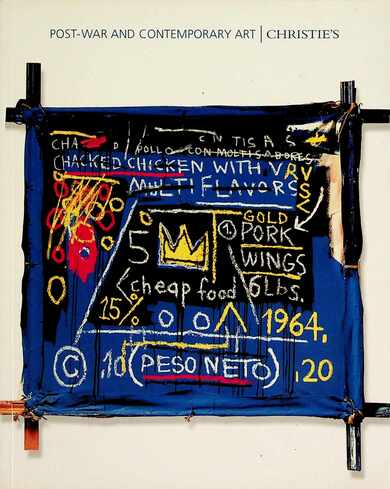 POST-WAR AND CONTEMPORARY ART | CHRISTIE'S
POLLO CON MULTISABORES
CHACKED CHICKEN WITH
MULTI FLAVORS
GOLD
5 ① PORK
WINGS
<cheap food 6 Lbs.
15%
1964.
© .10 (PESO NETO) .20